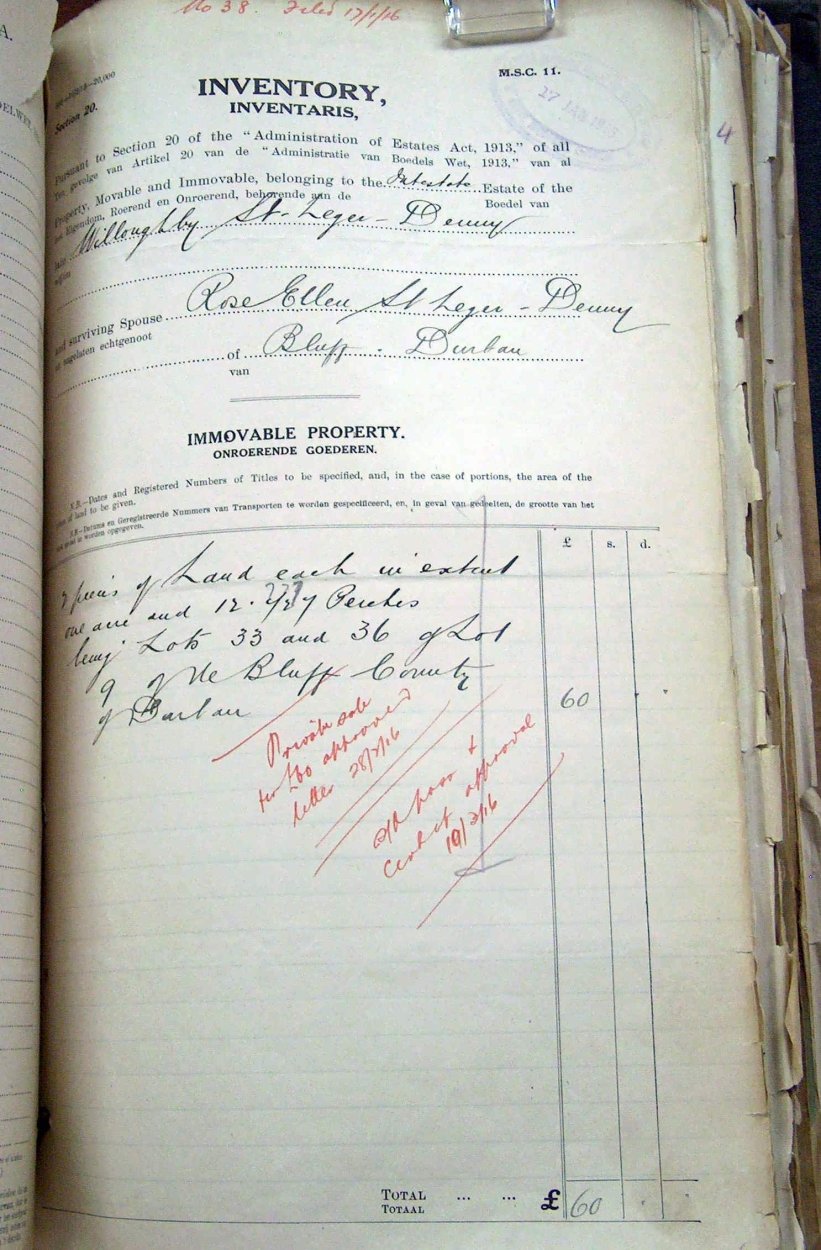 No 38. Filed 17/1/16
M.S.C. 11.
17 JAN
4
Section 20.
INVENTORY,
INVENTARIS,
Pursuant to Section 20 of the "Administration of Estates Act, 1913," of all
gevolge van Artikel 20 van de "Administratie van Boedels Wet, 1913," van al
Property, Movable and Immovable, belonging to the Intestate Estate of the
Eigendom, Roerend en Onroerend, behorende aan de Boedel van
late Willoughby St. Leger-Denny
surviving Spouse Rose Ellen St Leger-Denny
nagelaten echtgenoot
of Bluff. Durban
van
IMMOVABLE PROPERTY.
ONROERENDE GOEDEREN.
N.B.—Dates and Registered Numbers of Titles to be specified, and, in the case of portions, the area of the
of land to be given.
N.B.—Datums en Geregistreerde Nummers van Transporten te worden gespecificeerd, en, in geval van gedeelten, de grootte van het
te worden opgegeven.
£ s. d.
of Land each in extent
one acre and 12. Perches
being Lots 33 and 36 of Lot
9 of the Bluff County
of Durban 60
Private sale
for £60 approved
letter 28/2/16
approval
19/2/16
TOTAL ... ... £ 60
TOTAAL